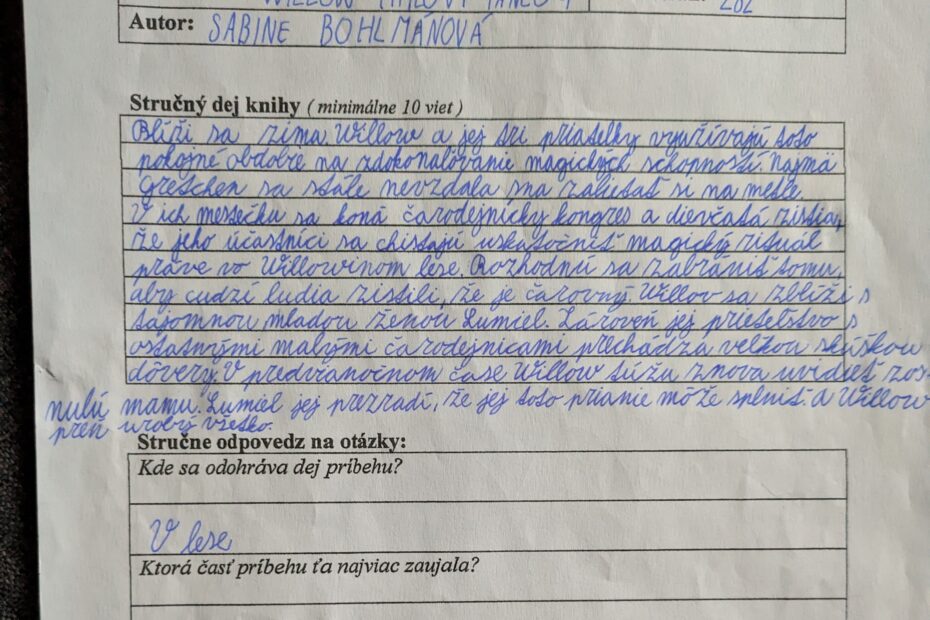 WILLOW
Autor: SABINE BOHLMÁNOVÁ
Stručný dej knihy ( minimálne 10 viet )
Blíži sa zima. Willow a jej tri priateľky využívajú toto
pokojné obdobie na zdokonaľovanie magických schopností. Najmä
Gretchen sa stále nevzdala sna zalietať si na metle.
V ich mestečku sa koná čarodejnícky kongres a dievčatá zistia,
že jeho účastníci sa chistajú uskutočniť magický rituál
práve vo Willowinom lese. Rozhodnú sa zabrániť tomu,
aby cudzí ľudia zistili, že je čarovný. Willov sa zblíži s
tajomnou mladou ženou Lumiel. Zároveň jej priateľstvo s
ostatnými malými čarodejnicami prechádza veľkou skúškou
dôvery. V predvianočnom čase Willow túži znova uvidieť zos-
nulú mamu. Lumiel jej prezradí, že jej toto prianie môže splniť. A Willow
preň urobý všetko.
Stručne odpovedz na otázky:
Kde sa odohráva dej príbehu?
V lese
Ktorá časť príbehu ťa najviac zaujala?